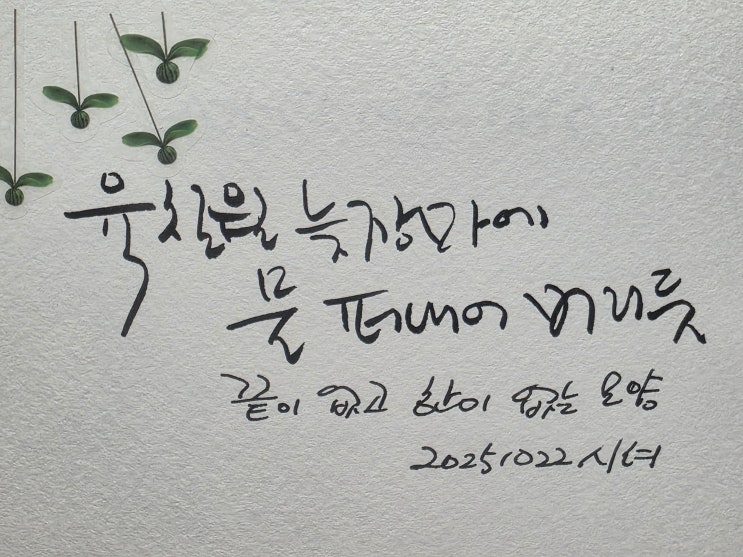 육칠월 늦장마에
물 퍼내어 버리듯
끝이 없고 한이 없는 모양
20251022 시녀